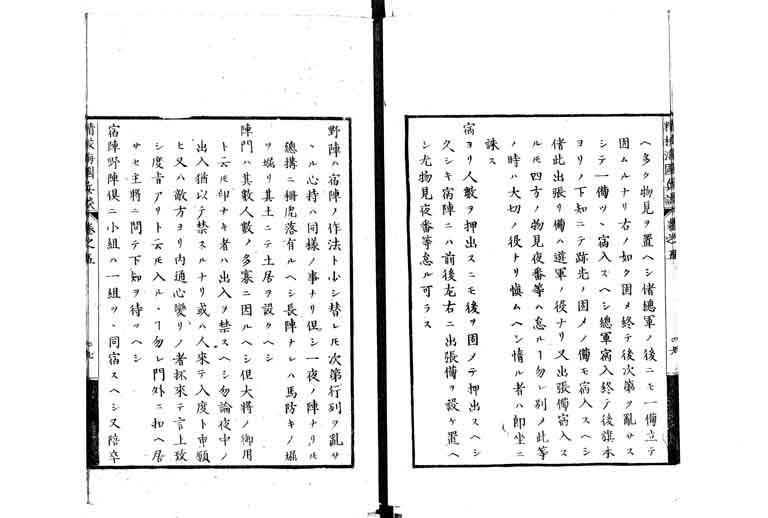 精校海國兵談 卷之五
ヘ多ク物見ヲ置ヘシ偖總軍ノ後ニモ一備立テ
固ムルナリ右ノ如ク固メ終テ後次第ヲ亂サス
シテ一備ツヽ宿入スヘシ總軍宿入終テ後旗本
ヨリノ下知ニテ跡先ノ固メノ備モ宿入スヘシ
偖此出張リ備ハ遊軍ノ役ナリ又出張備宿入ス
ルモ四方ノ物見夜番等ハ怠ルヿ勿レ別ノ此等
ノ時ハ大切ノ役トリ愼ムヘシ惰ル者ハ即坐ニ
誅ス
宿ヨリ人數ヲ押出スニモ後ヲ固メテ押出スヘシ
久シキ宿陣ニハ前後左右ニ出張備ヲ設ケ置ヘ
シ尤物見夜番等怠ル可ラス
野陣ハ宿陣ノ作法ト少シ替レモ次第行列ヲ亂サ
ヽル心持ハ同樣ノ事ナリ但シ一夜ノ陣ナリモ
總搆ニ柵虎落有ルヘシ長陣ナレハ馬防キノ堀
ヲ堀リ其土ニテ土居ヲ設クヘシ
陣門ハ其數人數ノ多寡ニ因ルヘシ但大將ノ御用
ト云モ印ナキ者ハ出入ヲ禁スヘシ勿論夜中ノ
出入猶以テ禁スルナリ或ハ人來テ入度ト申願
ヒ又ハ敵方ヨリ内通心變リノ者抔來テ言上致
シ度者アリト云モ入ルヽヿ勿レ門外ニ扣ヘ居
サセ主將ニ問テ下知ヲ待ツヘシ
宿陣野陣俱ニ小組ハ一組ツヽ同宿スヘシ又陪卒
精校海國兵談 卷之五